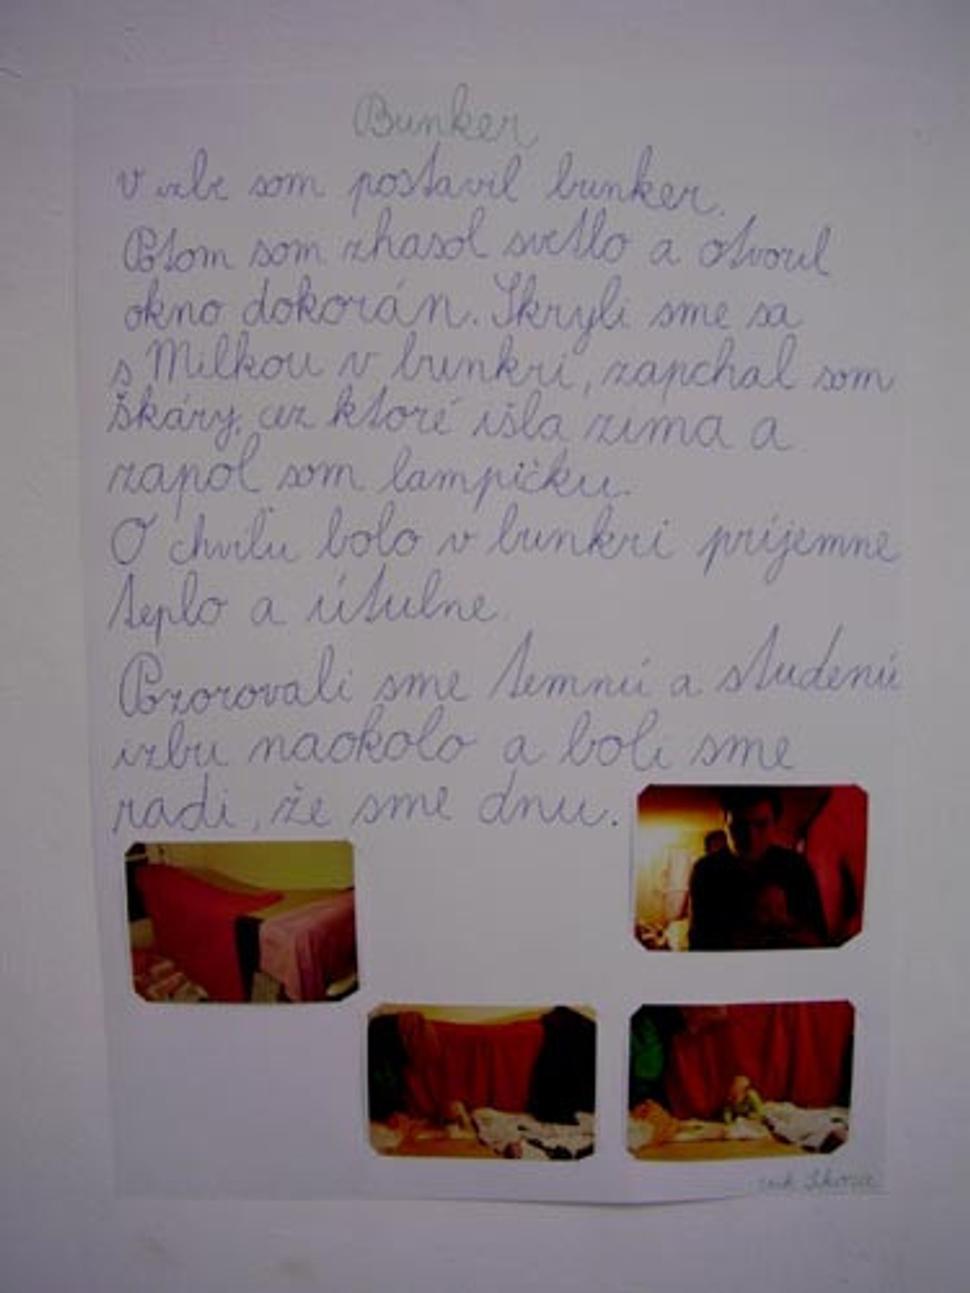 Bunker
V izbe som postavil bunker.
Potom som zhasol svetlo a otvoril
okno dokorán. Skryli sme sa
s Milkou v bunkri, zapchal som
škáry, cez ktoré išla zima a
zapol som lampičku.
O chvíľu bolo v bunkri príjemne
teplo a útulne.
Pozorovali sme temnú a studenú
izbu naokolo a boli sme
radi, že sme dnu.